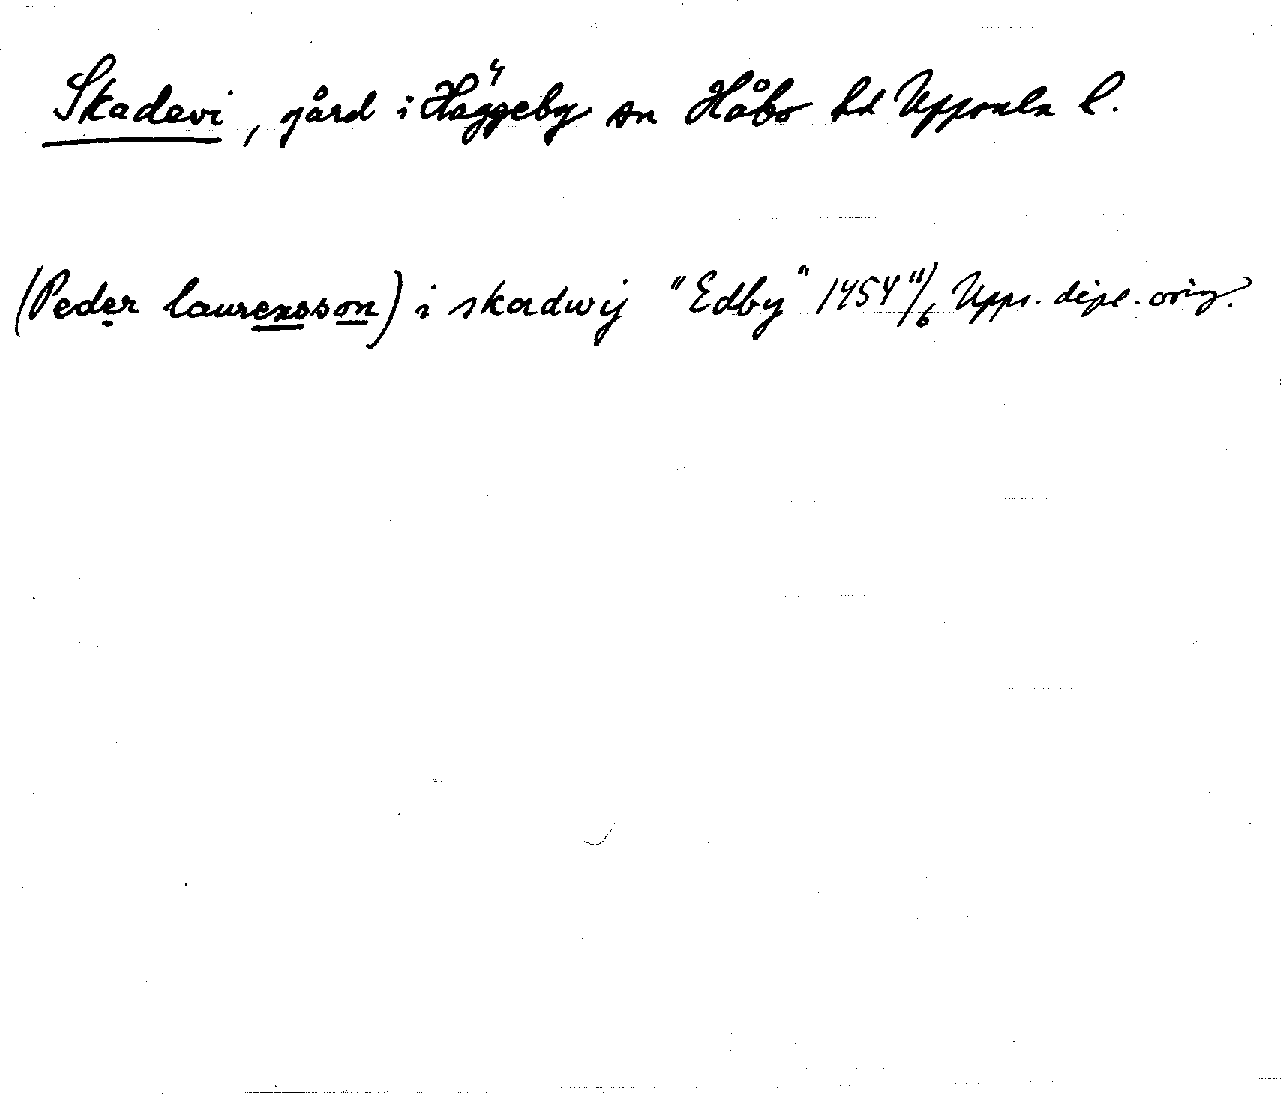 Skadevi, gård i Häggeby sn Håbo hd Uppsala l.
(Peder laurensson) i skadwij "Edby" 1454 11/6 Upps. dipl. orig.